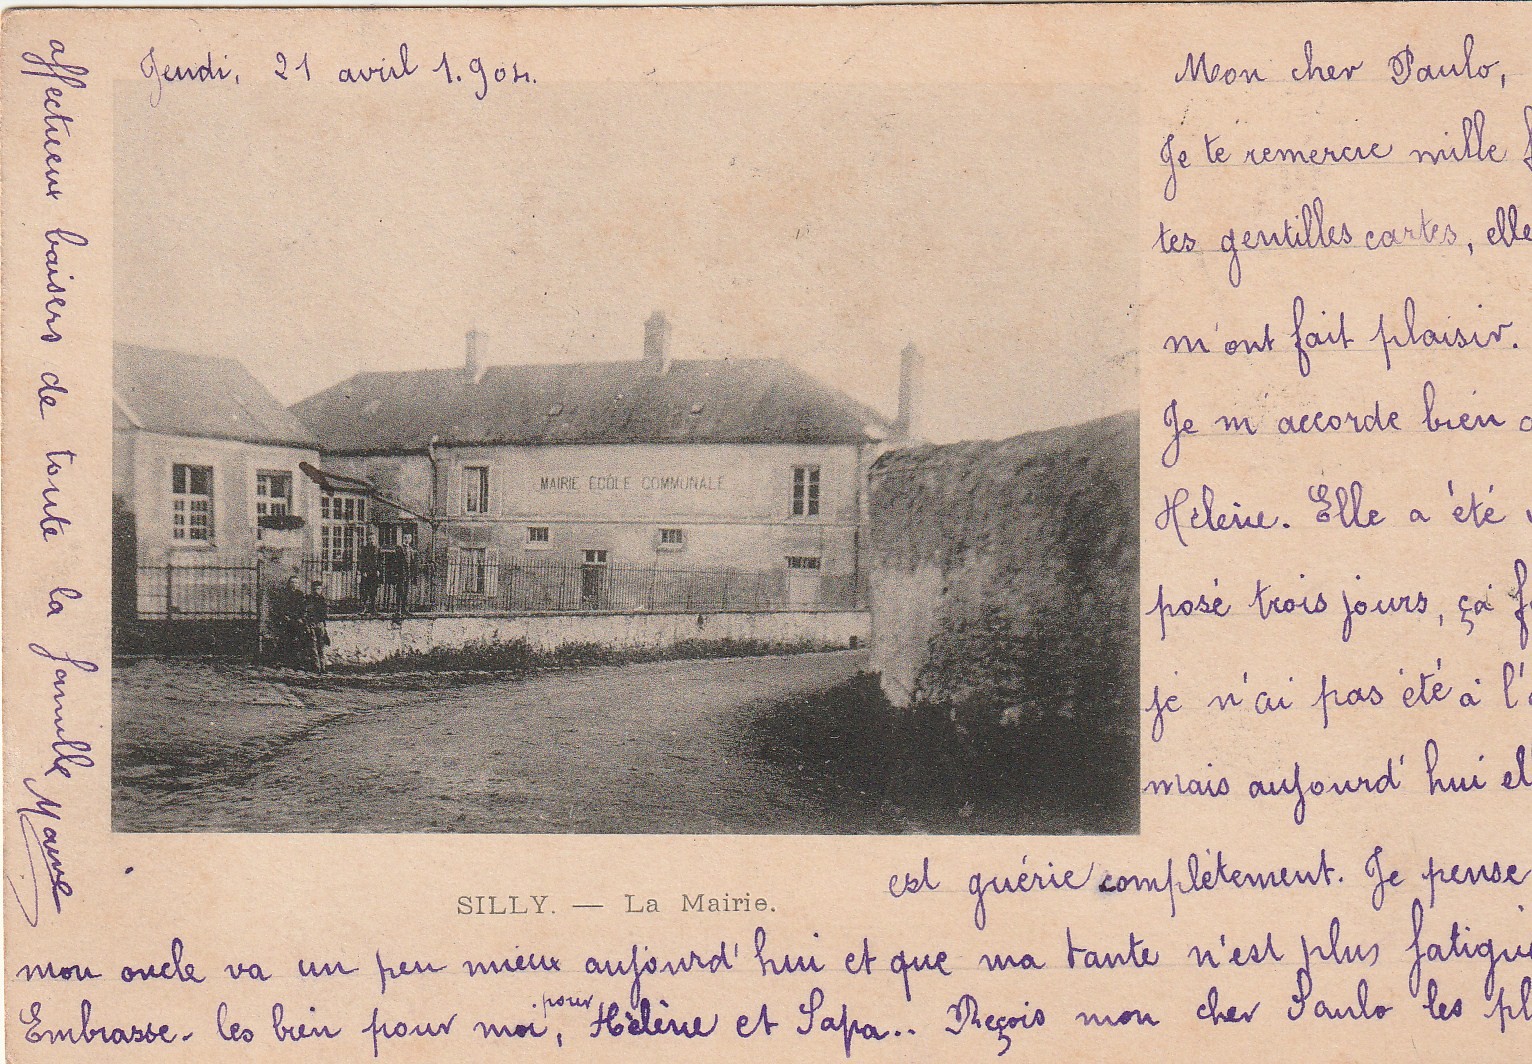 Jeudi, 21 avril 1.904.
Mon cher Paulo,
Je te remercie mille
tes gentilles cartes, elle
m'ont fait plaisir.
Je m'accorde bien
Hélène. Elle a été
posé trois jours, ça
je n'ai pas été à l'
mais aujourd'hui el
est guérie complètement. Je pense
mon oncle va un peu mieux aujourd'hui et que ma tante n'est plus fatigu
Embrasse-les bien pour moi, pour Hélène et Papa.. Reçois mon cher Paulo les pl
affectueux baisers de toute la famille
MAIRIE ECOLE COMMUNALE
SILLY. — La Mairie.